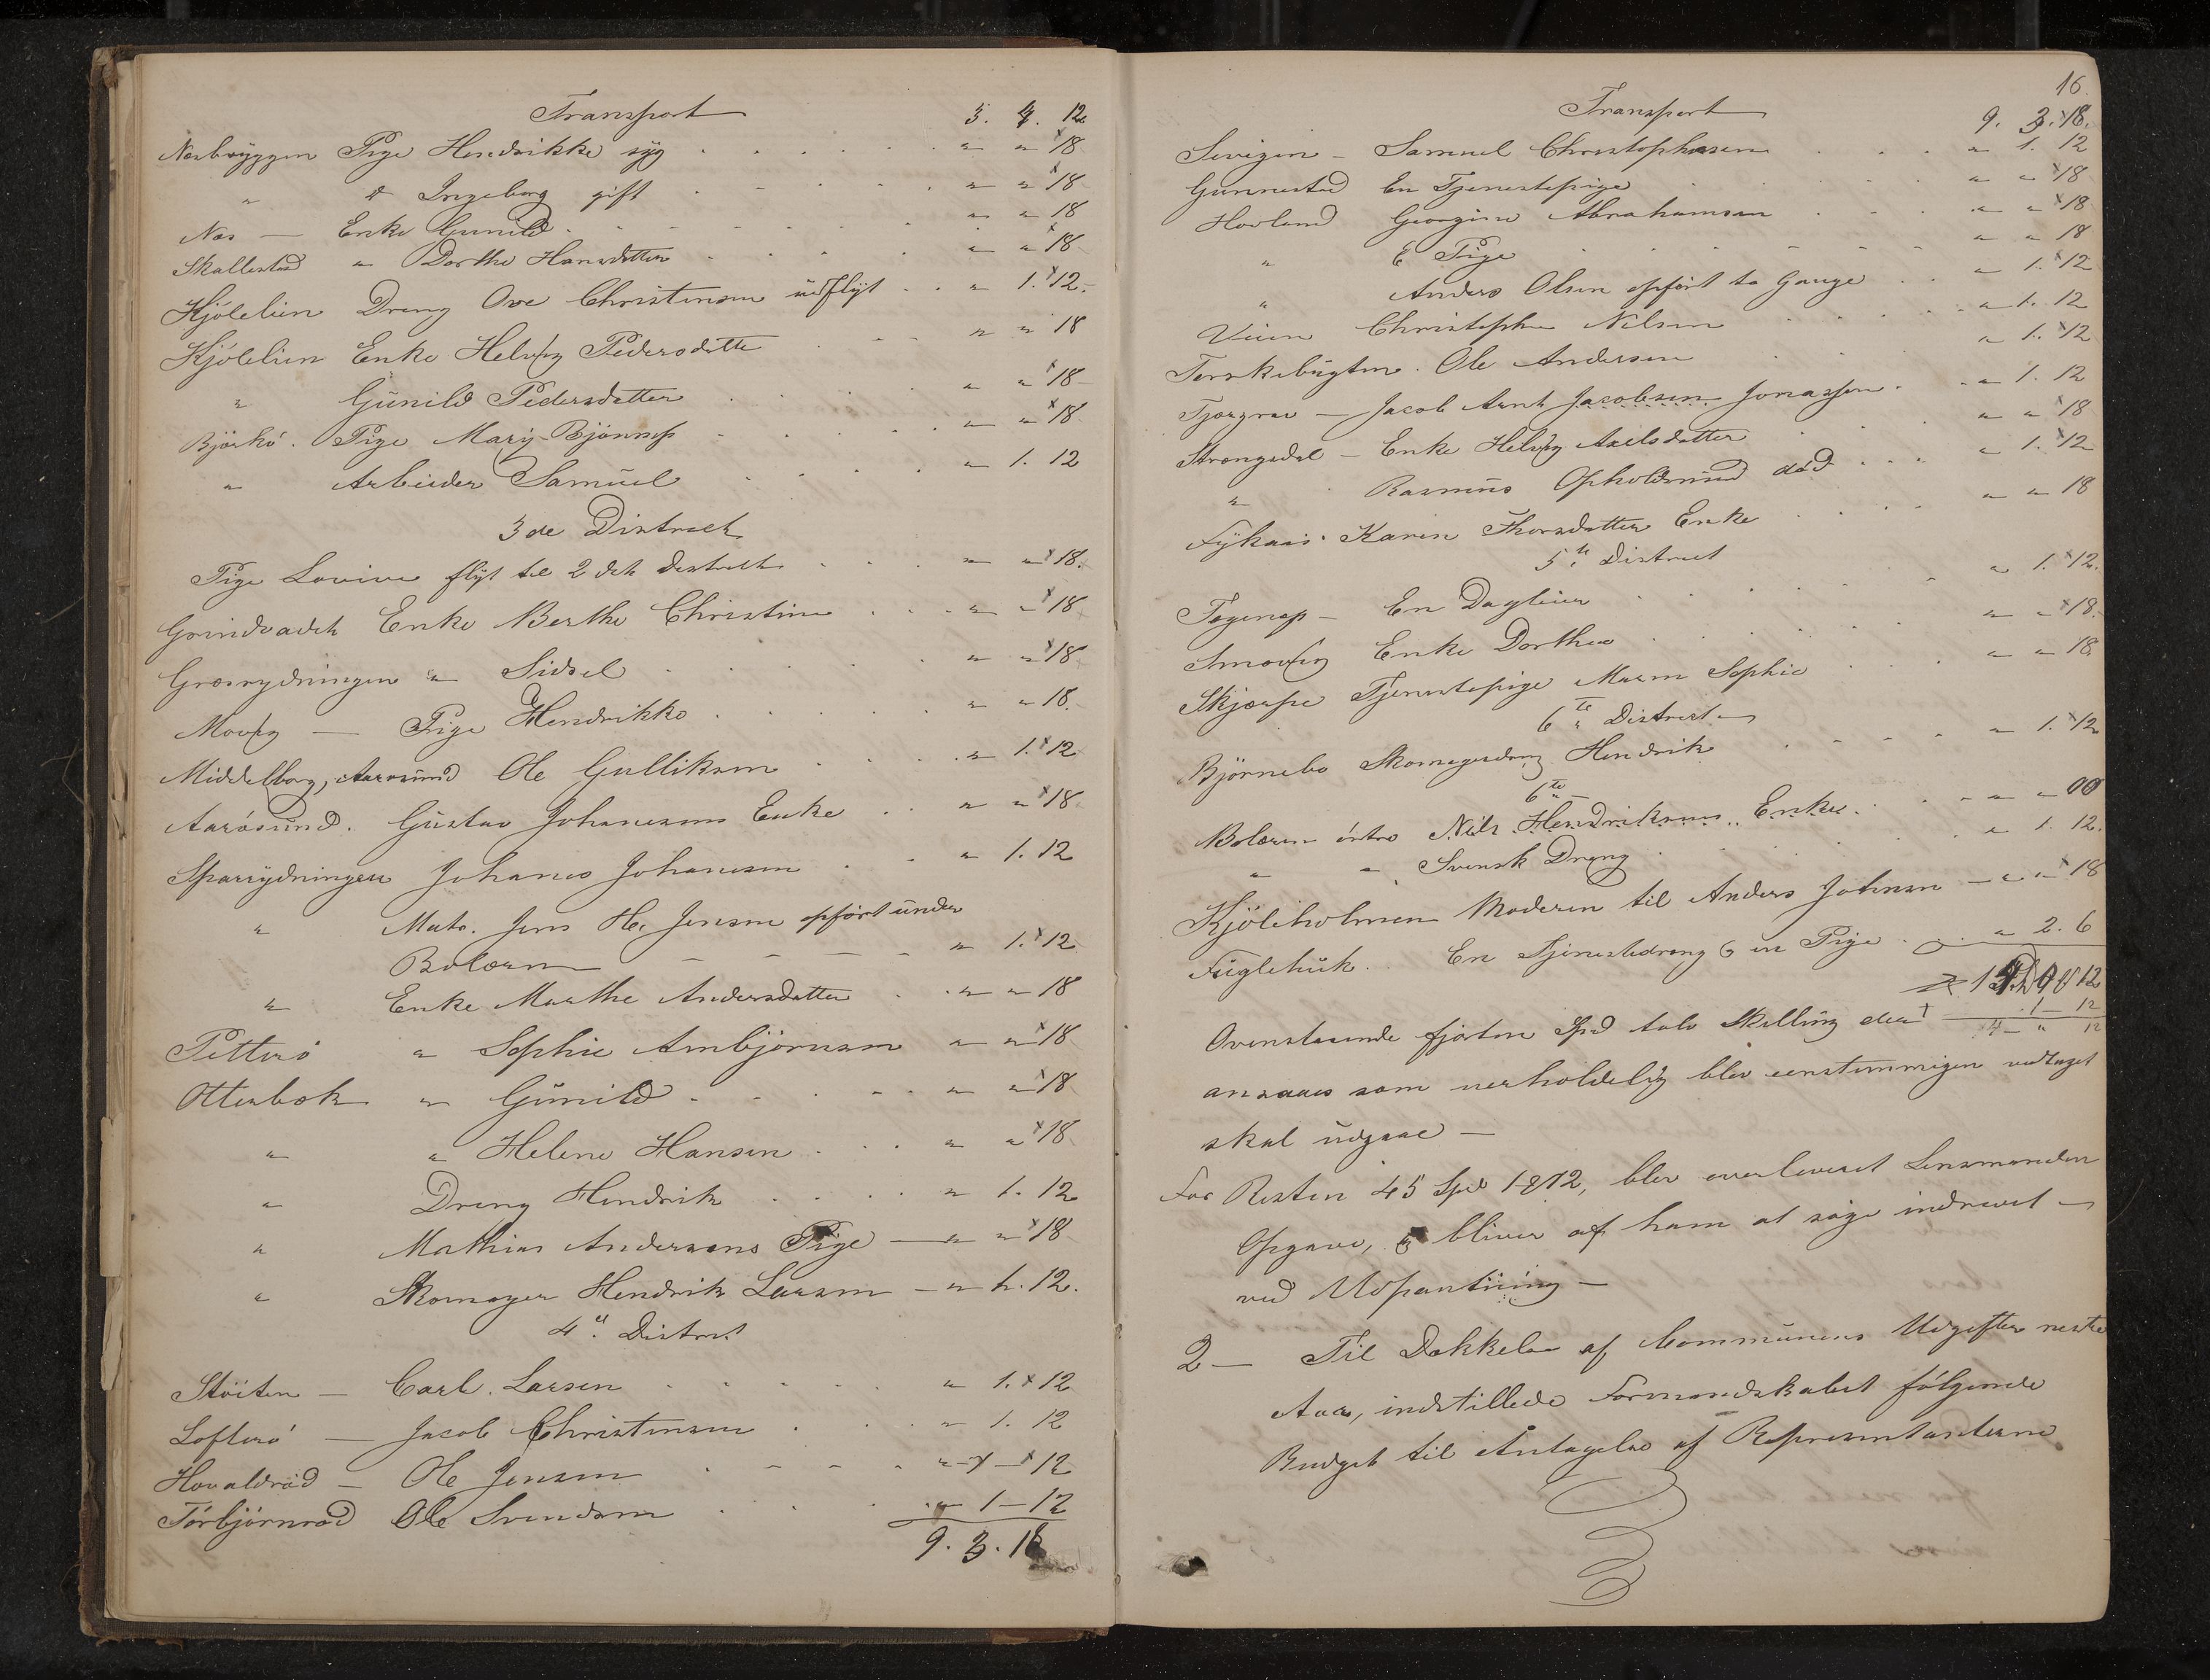 Transport 3. 4. 12
Næsbryggen Pige Hendrikke syg " " 18
" d Ingeborg gift " " 18
Næs — Enke Gunild " " 18
Skallestad " Dorthe Hansdatter " " 18
Kjölelien Dreng Ove Christensen udflyt " 1. 12
Kjölelien Enke Helvig Pedersdatte " " 18
" Gunild Pedersdatter " " 18
Björkö. Pige Mary Bjönness " " 18
" Arbeider Samuel " 1. 12
3de District
Pige Lovive flyt til 2det District " " 18.
Grindvadet Enke Berthe Christine " " 18
Græsrydningen " Sidsel " " 18
Movig — Pige Hendrikke " " 18.
Middelborg, Aarösund Ole Gulliksen " 1. 12
Aarösund. Gustav Johanesens Enke " " 18
Sparrydningen Johanes Johanesen " 1. 12
" Matr. Jens Hr. Jensen opfört under
Bolæren " 1. 12
" Enke Marthe Andersdatter " " 18
Petterö " Sophie Arnbjörnsen " " 18
Otterbek " Gunild " " 18
" " Helene Hansen " " 18
" Dreng Hendrik " 1. 12
" Mathias Andersens Pige — " " 18
" Skomager Hendrik Larsen — " 1. 12.
4de District
Stöiten — Carl. Larsen " 1. 12
Lofterö — Jacob Christensen " 1. 12
Hovaldröd — Ole Jensen " 1 — 12
Törbjörnröd Ole Svendsen " 1 — 12
9. 3. 18
16.
Transport 9. 3. 18.
Sevigen — Samuel Christophersen " 1. 12
Gunnestad En Tjenestepige " " 18
Hovland Georgine Abrahamsen " " 18
" E Pige " " 18
" Anders Olsen opfört to Gange " 1. 12
Veien Christopher Nilsen " 1. 12
Torskebugten. Ole Andersen " 1. 12
Tjærgrav — Jacob Arnt Jacobsen Jonassen. " 1. 12
Strengsdal — Enke Helvig Axelsdatter " " 18
" Rasmus Opholdsmand död " 1. 12
Fykaas. Karen Thorsdatter Enke " " 18
5te District
Fagernes — En Dagleier " 1. 12.
Smovig Enke Dorthea " " 18.
Skjærpe Tjenestepige Maren Sophie " " 18.
6te District —
Björnebo Skomagerdreng Hendrik " 1. 12
6te —
Bolæren östre Nils Hendriksens Enke. " " 00
" " Svensk Dreng " 1. 12.
Kjöleholmen Moderen til Anders Johnsen — " " 18
Fuglehuk. En Tjenestedreng & en Pige " 2. 6
1 — 12
14 — " 12
Ovenstaaende fjorten Spd tolv Skilling der
ansaaes som uerholdelig blev eenstemmigen vedtaget
skal udgaae —
For Resten 45 Spd 1-12, blev overleveret Lensmanden
Opgave, & bliver af ham at söge indrevet —
ved Udpantning —
2 — Til Dækkelse af Communens Udgifter neste
Aar, indstillede Formandskabet fölgende
Budget til Antagelse af Repræsentanterne